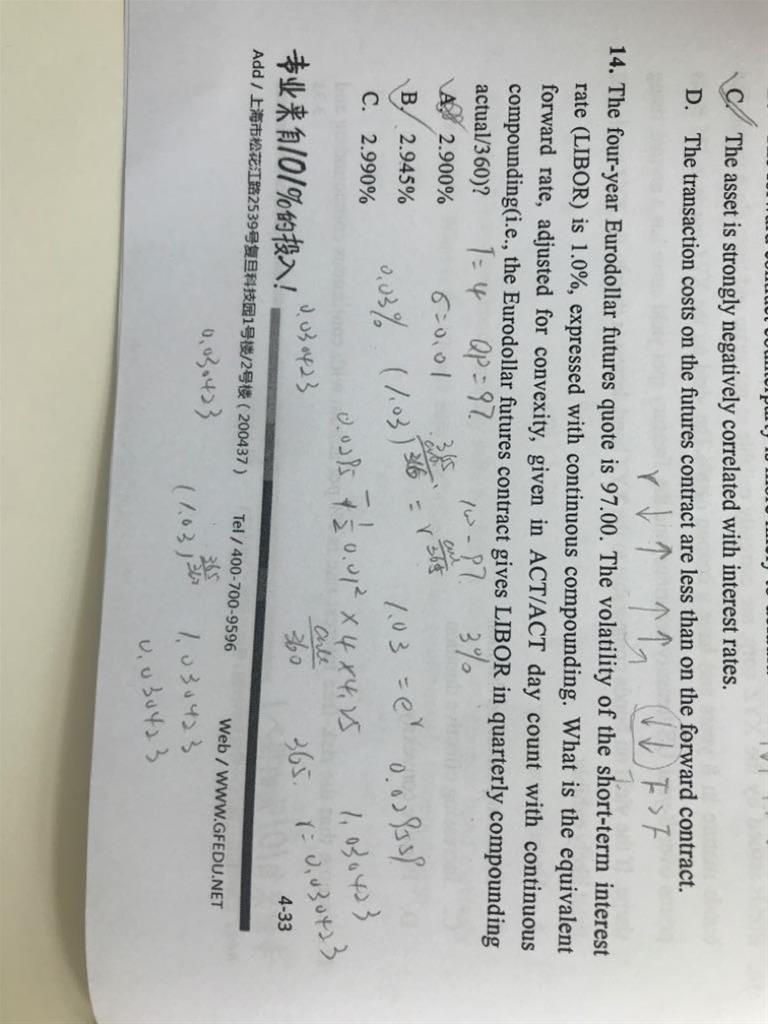 C. The asset is strongly negatively correlated with interest rates.
D. The transaction costs on the futures contract are less than on the forward contract.
r ↓ ↑ ↑↑ (↓↓) F > F
14. The four-year Eurodollar futures quote is 97.00. The volatility of the short-term interest
rate (LIBOR) is 1.0%, expressed with continuous compounding. What is the equivalent
forward rate, adjusted for convexity, given in ACT/ACT day count with continuous
compounding(i.e., the Eurodollar futures contract gives LIBOR in quarterly compounding
actual/360)?
T = 4 QP = 97. 3%
A. 2.900%
σ = 0.01
B. 2.945%
1.03 = e^r 0.029559
C. 2.990%
0.03%
1.030423
0.0295 - 1/2 0.01² × 4 × 4.25
0.030423
360
365. r = 0.030423
专业来自101%的投入!
4-33
Add / 上海市松花江路2539号复旦科技园1号楼/2号楼 ( 200437 ) Tel / 400-700-9596 Web / WWW.GFEDU.NET
0.030423
(1.03) 365/360 1.030423
0.030423